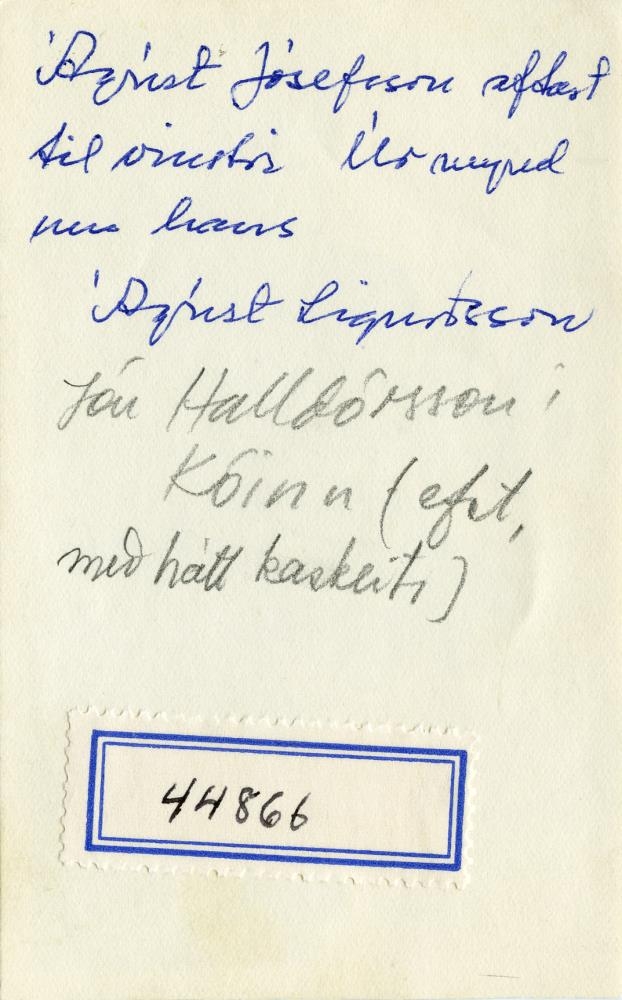 Ágúst Jósefsson aftast
til vinstri Úr mynd
hans
Ágúst Sigurðsson
Jón Halldórsson í
Kóinn (efst,
með hátt kaskeiti)
44866